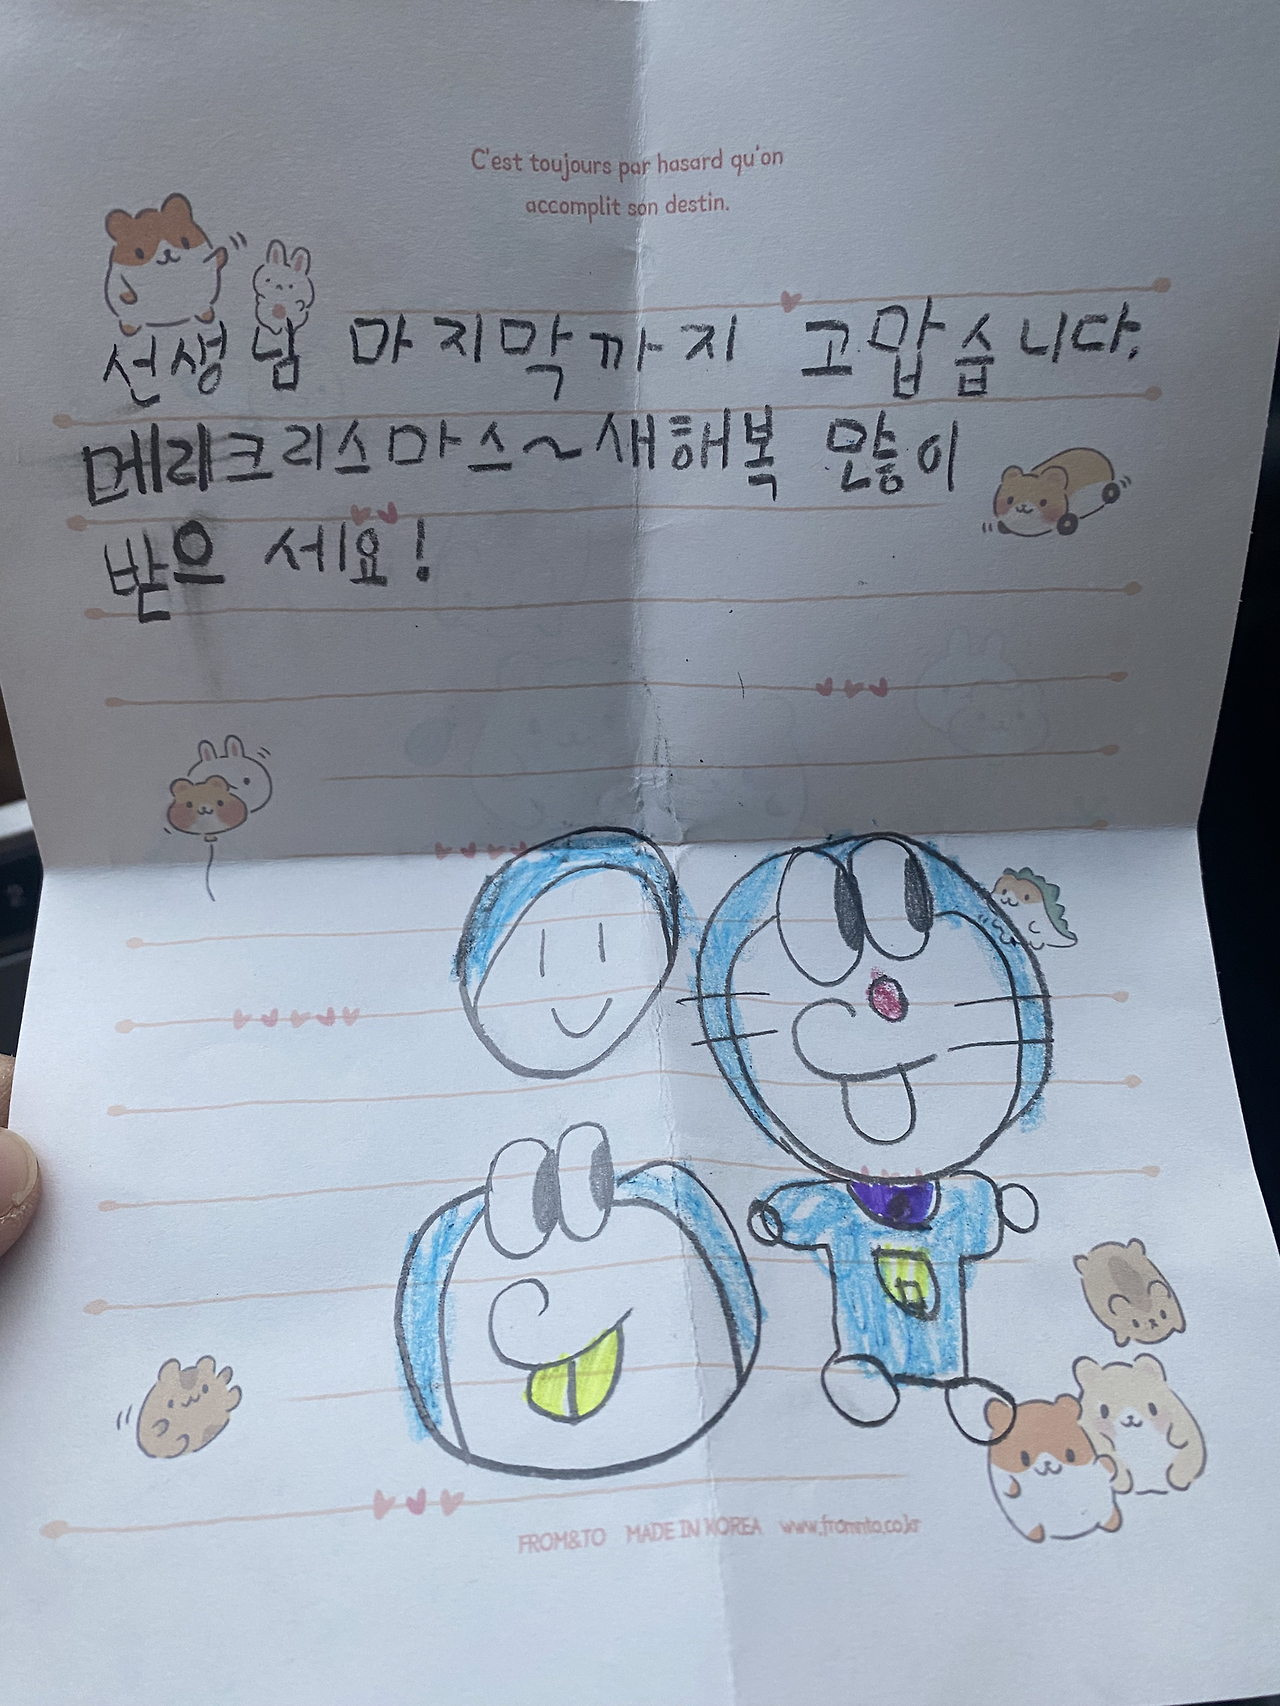 C'est toujours par hasard qu'on
accomplit son destin.
선생님 마지막까지 고맙습니다.
메리크리스마스~새해복 많이
받으세요!
FROM&TO MADE IN KOREA www.fromnto.co.kr